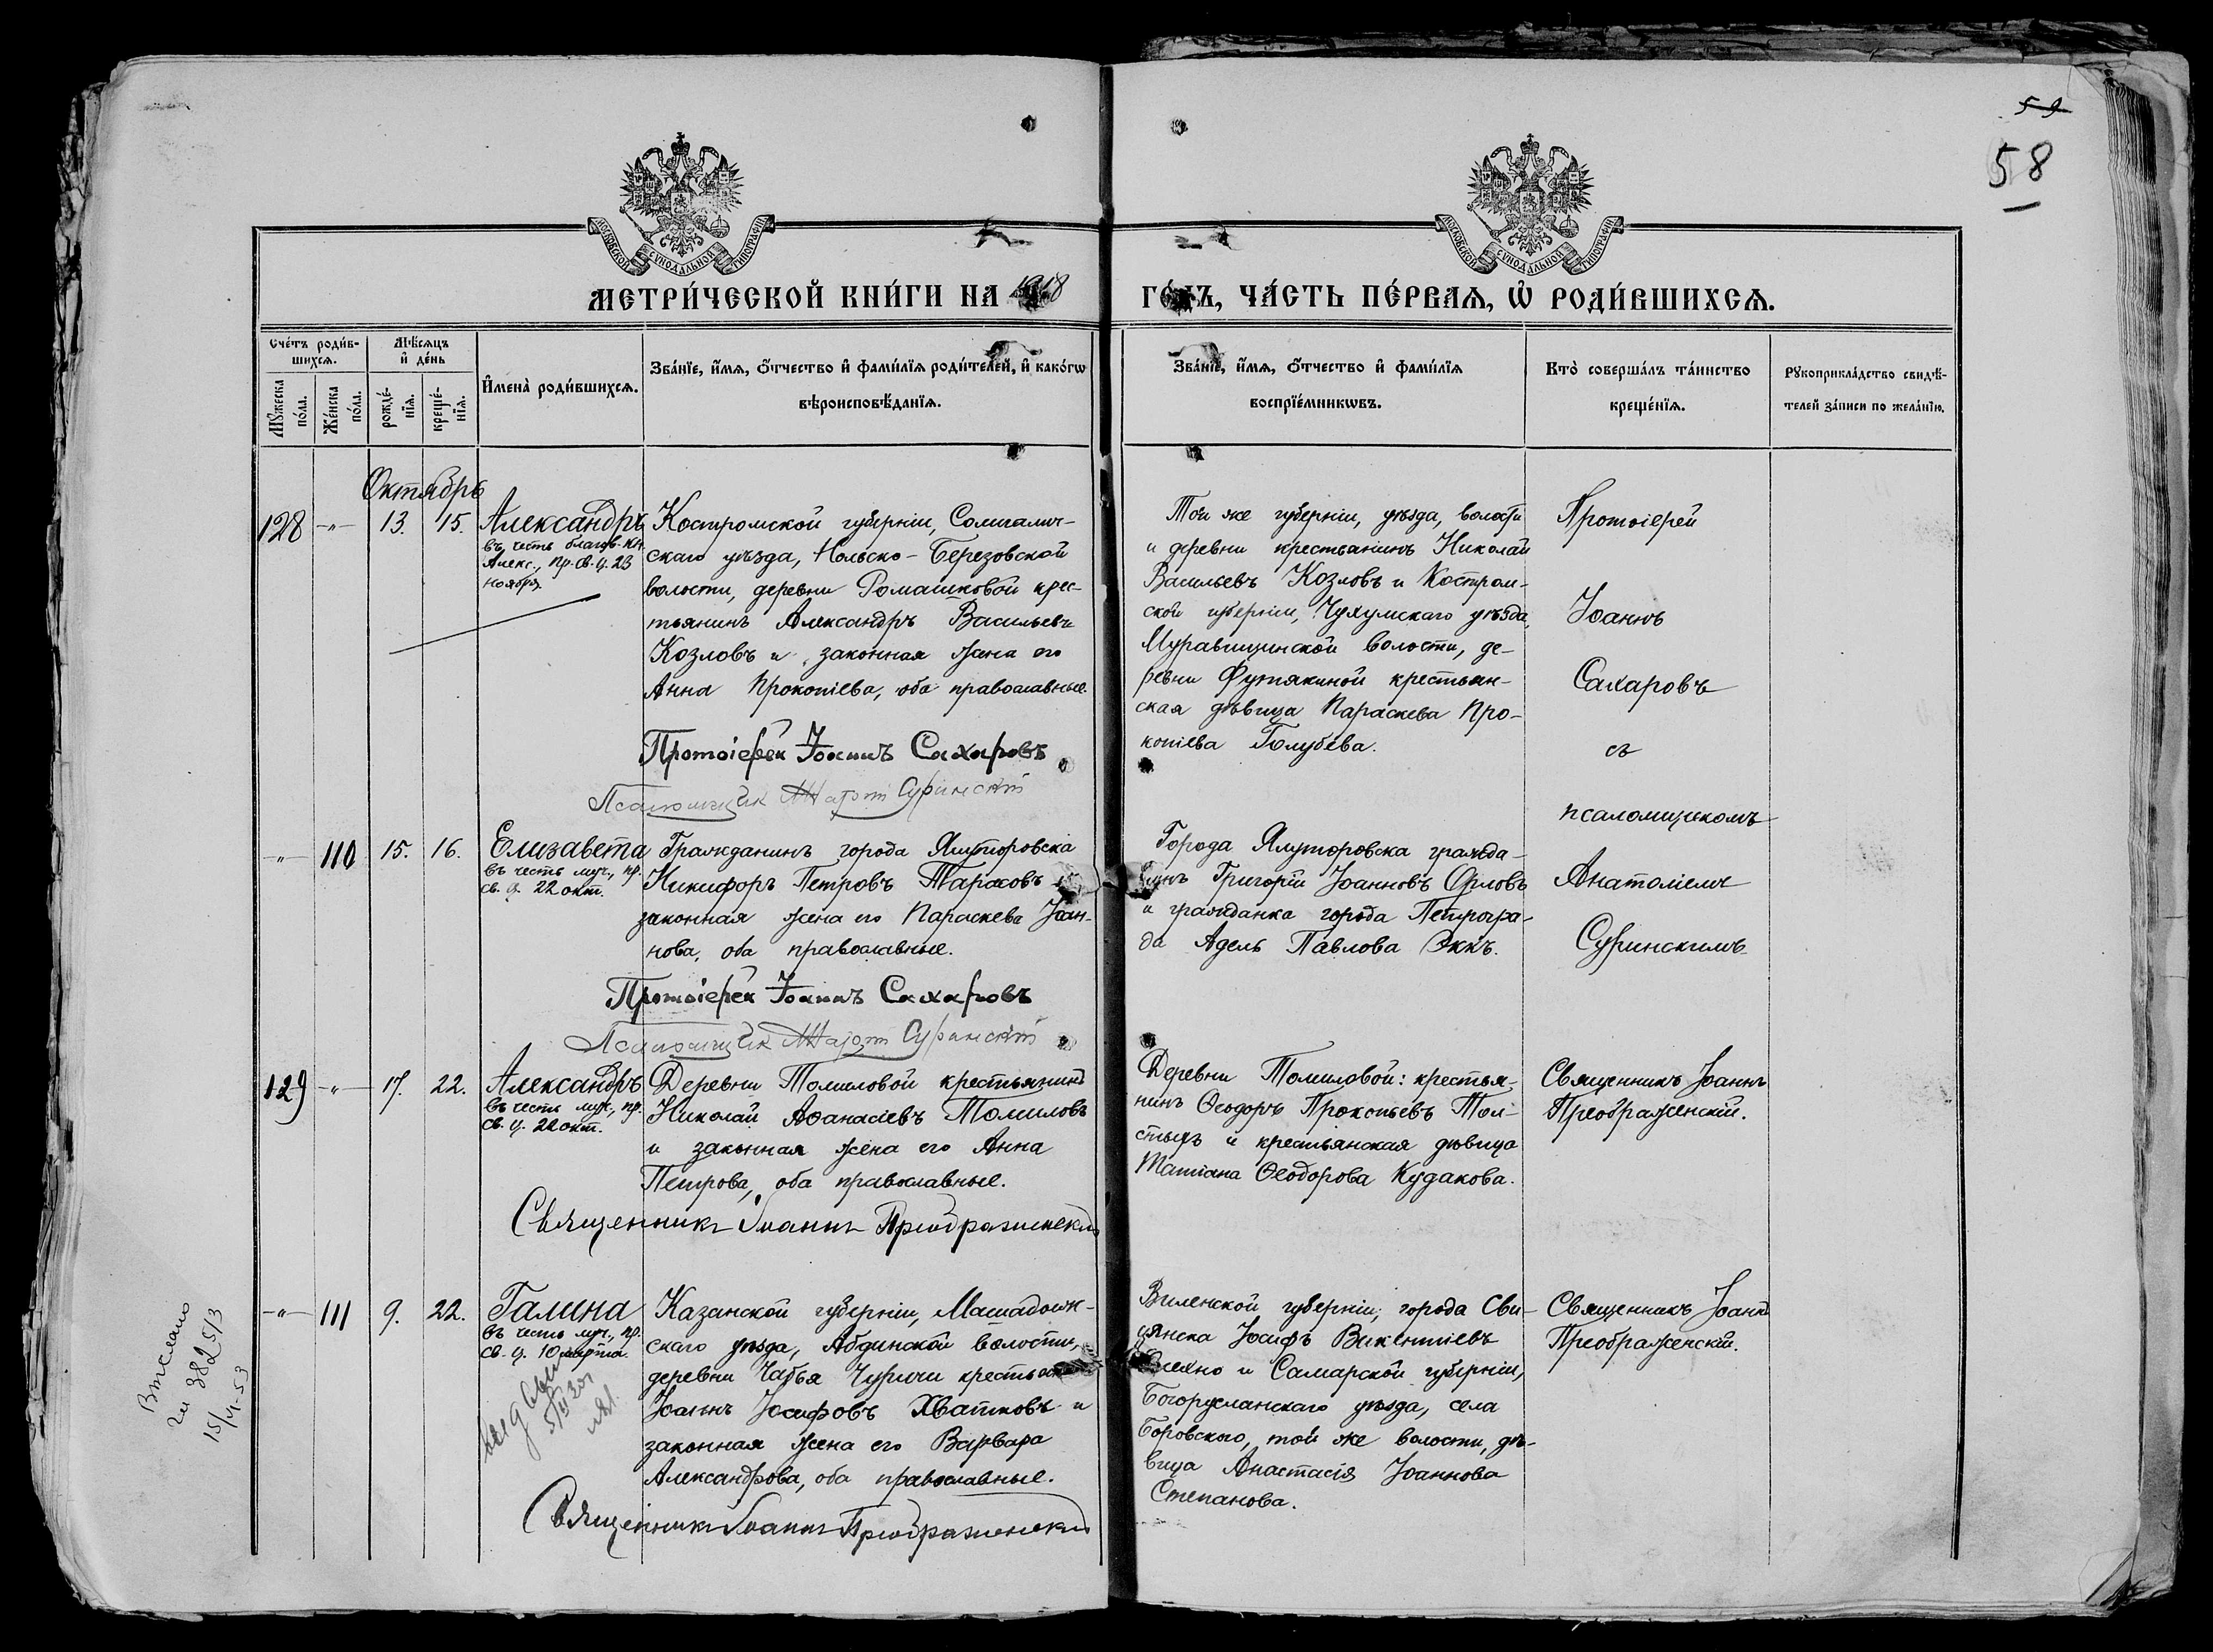 59
58
МОСКОВСКОЙ СУНОДАЛЬНОЙ ТИПОГРАФІИ
МОСКОВСКОЙ СУНОДАЛЬНОЙ ТИПОГРАФІИ
МЕТРИ́ЧЕСКОЙ КНИ́ГИ НА 1918
ГО́ДЪ, ЧА́СТЬ ПЕ́РВАѦ, Ѡ РОДИ́ВШИХСѦ.
Сче́тъ роди́в-
шихсѧ.
Мꙋжеска
по́ла.
Же́нска
по́ла.
Мѣ́сѧцъ
и҆ де́нь
рожде́-
нїѧ.
креще́-
нїѧ.
И҆мена̀ роди́вшихсѧ.
Зва́нїе, и҆́мѧ, ѻ҆́тчество и҆ фамѝлїѧ роди́телей, и҆ како́гѡ
вѣроисповѣ́данїѧ.
Зва́нїе, и҆́мѧ, ѻ҆́тчество и҆ фами́лїѧ
воспрїе́мникѡвъ.
Кто̀ соверша́лъ та́инство
креще́нїѧ.
Рꙋкоприкла́дство свидѣ́-
телей за́писи по жела́нїю.
Октябрь
128 -"- 13. 15.
Александръ
въ честь благов. кн.
Алекс., пр. св. ц. 23
ноября
Костромской губерніи, Солигалич-
скаго уѣзда, Нольско-Березовской
волости, деревни Ромашковой крес-
тьянинъ Александръ Васильевъ
Козловъ и законная жена его
Анна Прокопіева, оба православные.
Протоіерей Іоаннъ Сахаровъ
Псаломщик Суринскій
Той же губерніи, уѣзда, волости
и деревни крестьянинъ Николай
Васильевъ Козловъ и Костром-
ской губерніи, Чухумскаго уѣзда,
Муравищинской волости, де-
ревни Футякиной крестьян-
ская дѣвица Параскева Про-
копіева Голубева.
Протоіерей
Іоаннъ
Сахаровъ
съ
псаломщикомъ
Анатоліемъ
Суринскимъ.
-"- 110 15. 16.
Елизавета
въ честь муч., пр.
св. ц. 22 окт.
Гражданинъ города Ялуторовска
Никифоръ Петровъ Тарасовъ
законная жена его Параскева Іоан-
нова, оба православные.
Протоіерей Іоаннъ Сахаровъ
Псаломщик Суринскій
Города Ялуторовска гражда-
нинъ Григорій Іоанновъ Орловъ
и гражданка города Петрогра-
да Адель Павлова Эккъ.
129 -"- 17. 22.
Александръ
въ честь муч., пр.
св. ц. 22 окт.
Деревни Томиловой крестьянинъ
Николай Аѳанасіевъ Томиловъ
и законная жена его Анна
Петрова, оба православные.
Священникъ Іоаннъ Преображенскій
Деревни Томиловой: крестья-
нинъ Ѳеодоръ Прокопьевъ Тол-
стыхъ и крестьянская дѣвица
Татіана Ѳеодорова Кудакова.
Священникъ Іоаннъ
Преображенскій.
-"- 111 9. 22.
Галина
въ честь муч., пр.
св. ц. 10 марта.
5/III 30г
Казанской губерніи, Мамадыш-
скаго уѣзда, Абдинской волости,
деревни Чабья Чурчи крестьянинъ
Іоаннъ Іосифовъ Хватковъ и
законная жена его Варвара
Александрова, оба православные.
Священникъ Іоаннъ Преображенскій
Виленской губерніи, города Сви-
цянска Іосифъ Викентіевъ
и Самарской губерніи,
Богорусланскаго уѣзда, села
Боровского, той же волости, дѣ-
вица Анастасія Іоаннова
Степанова.
Священникъ Іоаннъ
Преображенскій.
3825/3
15/VI-53